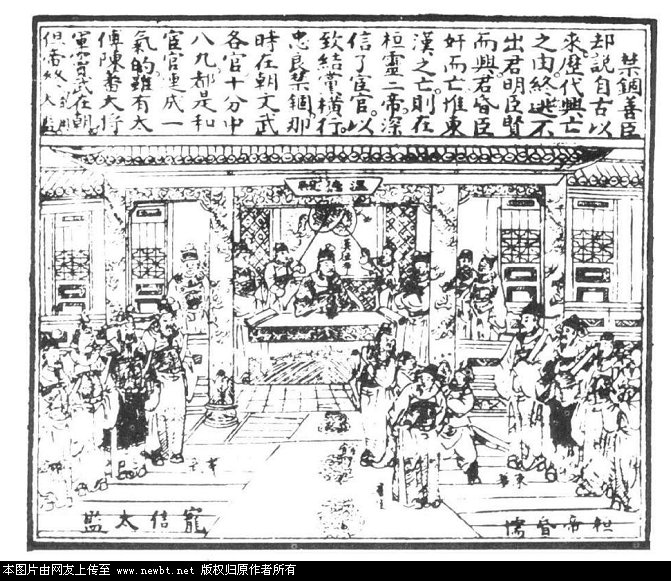 禁錮善臣
却說自古以
來歷代興亡
之由終逃不
出君明臣賢
而興君昏臣
奸而亡惟東
漢之亡則在
桓靈二帝深
信了宦官。以
致結黨橫行。
忠良禁錮那
時在朝文武
各官十分中
八九都是和
宦官連成一
氣的雖有太
傅陳蕃大將
軍竇武在朝
溫德殿
桓帝昏懦
寵信太監
本图片由网友上传至 www.newbt.net 版权归原作者所有